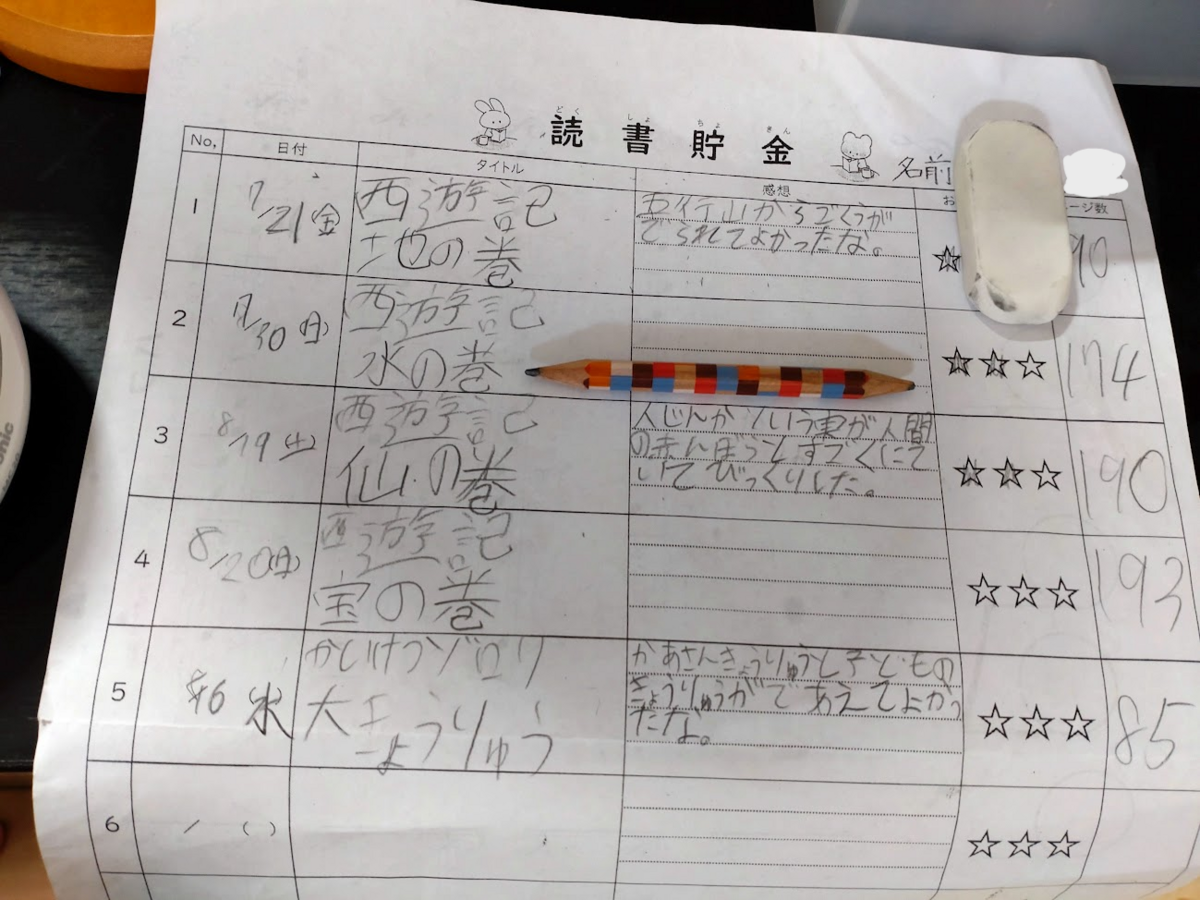 読書貯金
どくしょちょきん
名前
No,
日付
タイトル
感想
お
ージ数
1
7/21(金)
西遊記
地の巻
五行山からごくうが
でられてよかったな。
90
2
7/30(日)
西遊記
水の巻
☆☆☆
174
3
8/19(土)
西遊記
仙の巻
人じんかという実が人間
の赤んぼうとすごくにて
いてびっくりした。
☆☆☆
190
4
8/20(日)
西遊記
宝の巻
☆☆☆
193
5
水
かいけつゾロリ
大きょうりゅう
かあさんきょうりゅうと子どもの
きょうりゅうがであえてよかっ
たな。
☆☆☆
85
6
/ ( )
☆☆☆
onic